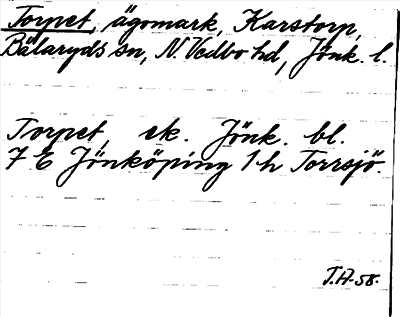 Torpet, ägomark, Karstorp,
Bälaryds sn, N. Vedbo hd, Jönk. l.
Torpet, ek. Jönk. bl.
7 E Jönköping 1 h Torrsjö.
T.H-58.